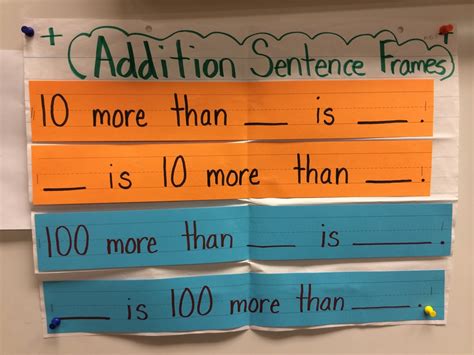 + (Addition Sentence Frames) +
10 more than ___ is ___.
___ is 10 more than ___.
100 more than ___ is ___.
___ is 100 more than ___.